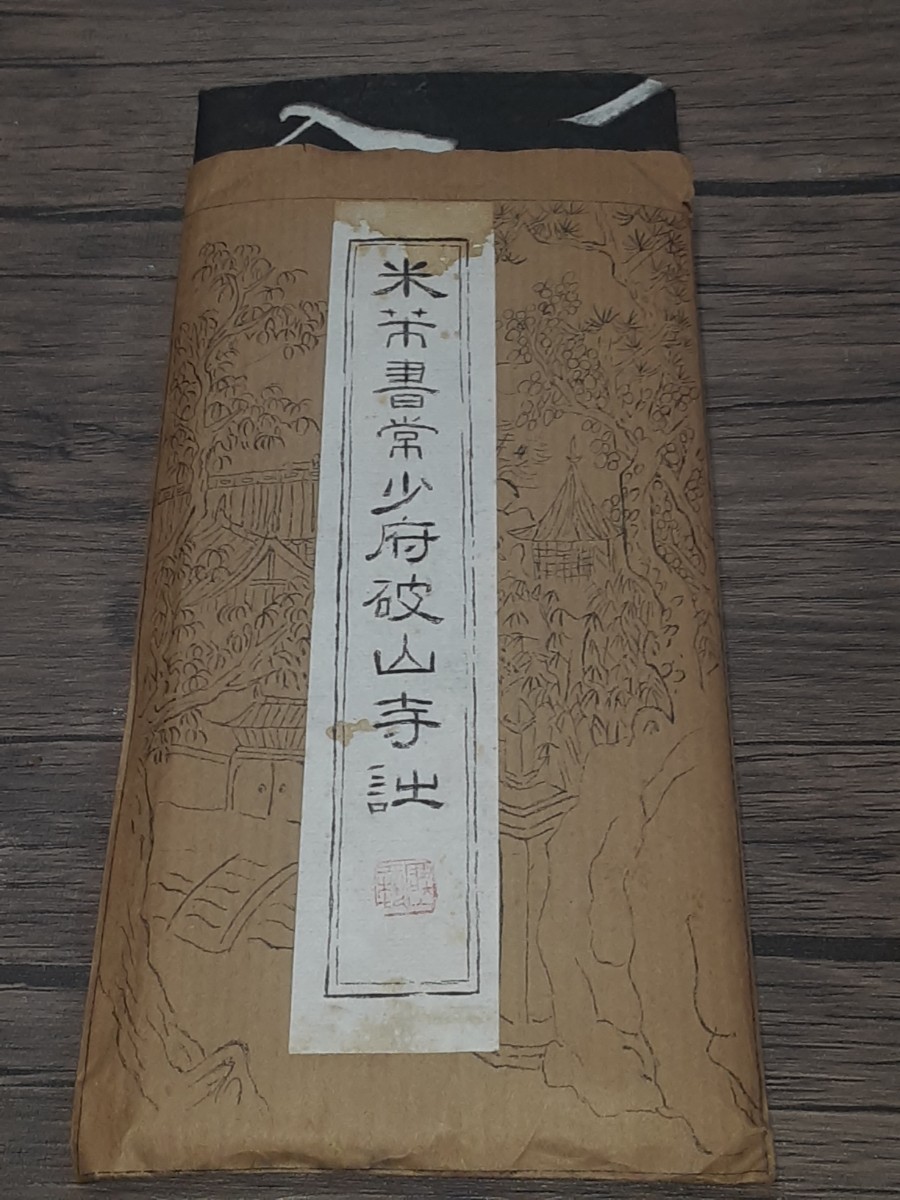 米芾書常少府破山寺詩